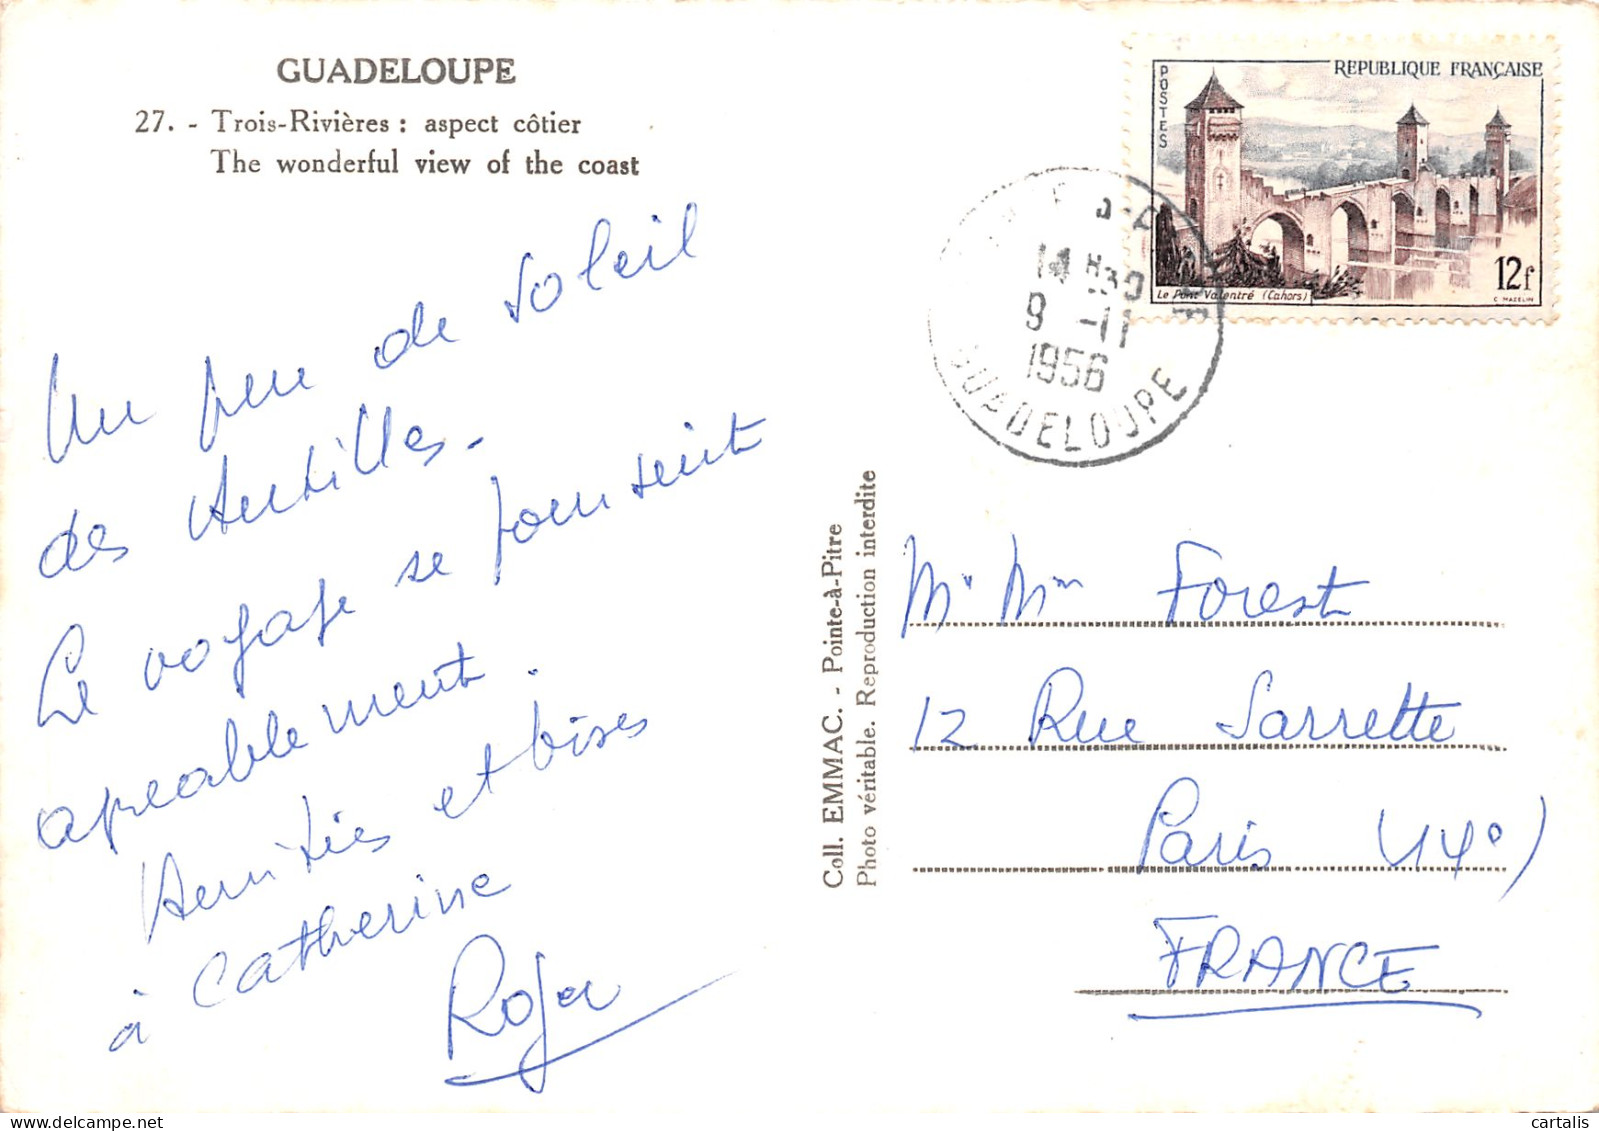 GUADELOUPE
27. - Trois-Rivières : aspect côtier
The wonderful view of the coast
Un peu de soleil
des Antilles -
Le voyage se poursuit
agréablement.
Amitiés et bises
à Catherine
Roger
Coll. EMMAC. - Pointe-à-Pitre
Photo véritable. Reproduction interdite
POSTES
REPUBLIQUE FRANÇAISE
12f
Le Pont Valentré (Cahors)
C. MAZELIN
14 H30
9 -11
1956
GUADELOUPE
Mr Mme Forest
12 Rue Sarrette
Paris (14°)
FRANCE
cartalis
www.delcampe.net